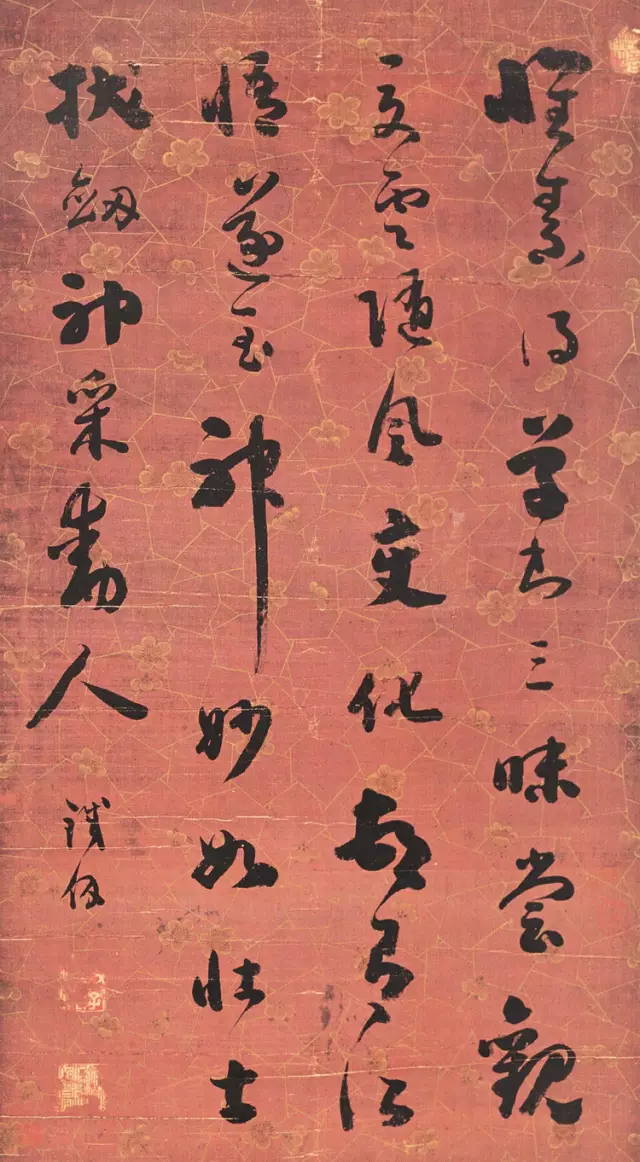 懷素得草書三昧嘗觀
夏雲隨風變化頓有所
悟遂至神妙如壯士
拔劒神采動人
鐵保